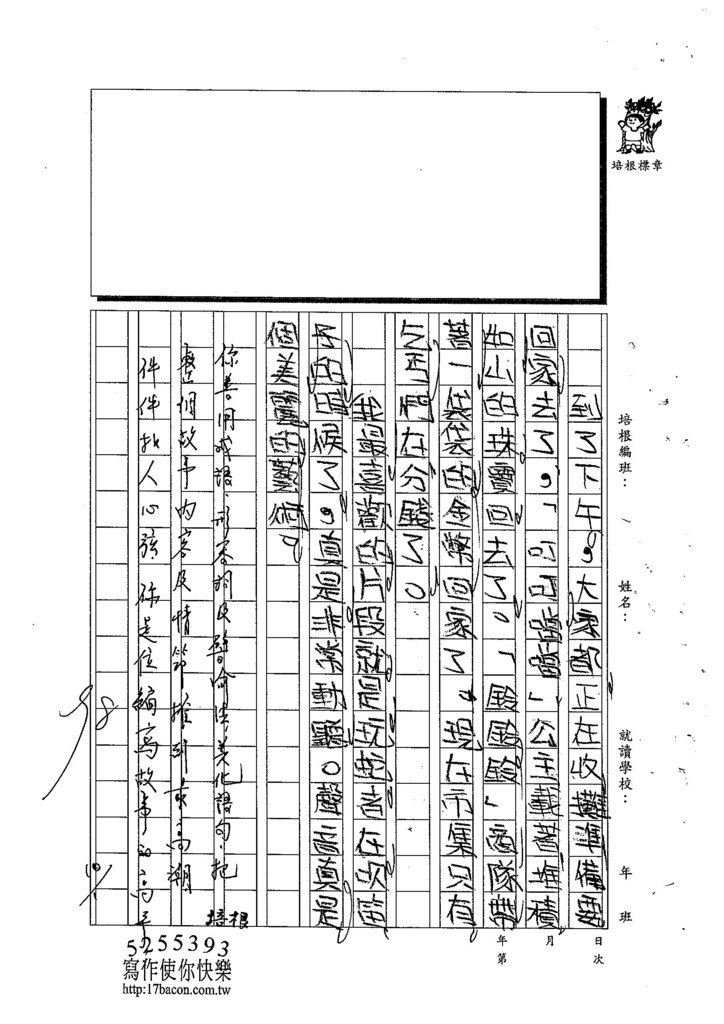 培根標章
培根編班： 姓名： 就讀學校： 年 班
年 月 日
第 次
到了下午，大家都正在收攤準備要
回家去了，「叩叩噹噹」公主載著堆積
如山的珠寶回去了。「鈴鈴鈴」商隊帶
著一袋袋的金幣回家了。現在市集只有
乞丐們在分錢了。
我最喜歡的片段就是玩蛇者在吹笛
子的時候了，真是非常動聽。聲音真是
個美麗的藝術。
你善用成語、形容詞及譬喻法，美化語句，把
整個故事內容及情節推到最高潮
件件扣人心弦 你是位編寫故事的高手
98
培根
5255393
寫作使你快樂
http:17bacon.com.tw